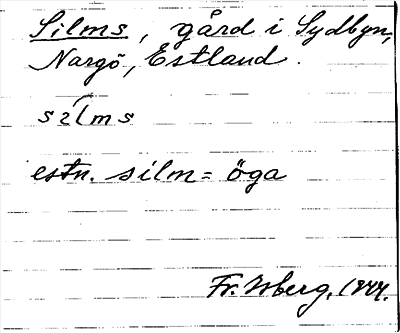 Silms, gård i Sydbyn,
Nargö, Estland.
silms
estn. silm = öga
Fr. Isberg, 1944.